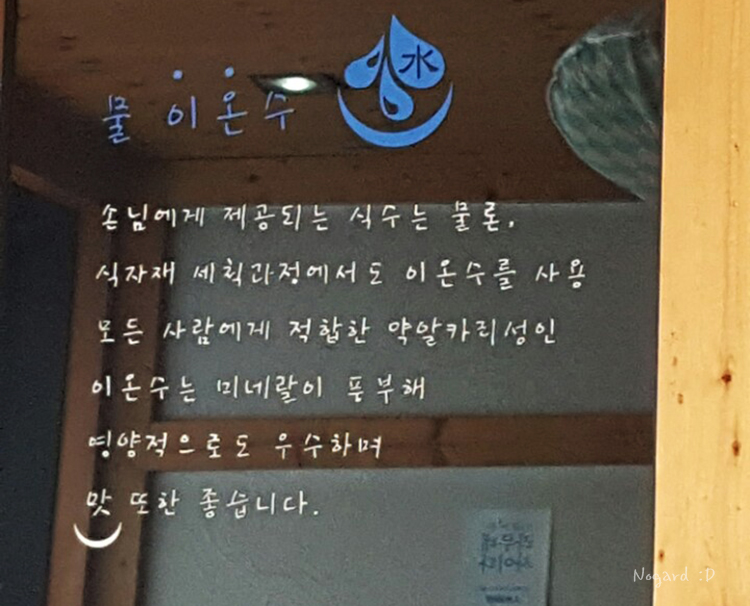 水
물 이온수
손님에게 제공되는 식수는 물론,
식자재 세척과정에서도 이온수를 사용
모든 사람에게 적합한 약알카리성인
이온수는 미네랄이 풍부해
영양적으로도 우수하며
맛 또한 좋습니다.
Nogard :D